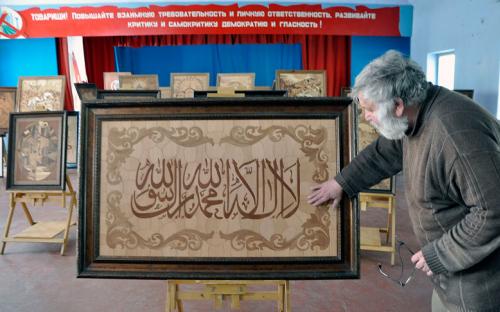 ТОВАРИЩИ! ПОВЫШАЙТЕ ВЗАИМНУЮ ТРЕБОВАТЕЛЬНОСТЬ И ЛИЧНУЮ ОТВЕТСТВЕННОСТЬ, РАЗВИВАЙТЕ
КРИТИКУ И САМОКРИТИКУ ДЕМОКРАТИЮ И ГЛАСНОСТЬ!
لا اله الا الله محمد رسول الله